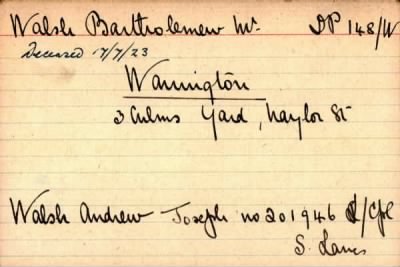 Walsh Bartholemew Mr. DP 148/W
Deceased 17/7/23
Warrington
3 Culms Yard, Naylor St
Walsh Andrew Joseph no 201946 L/Cpl
S. Lancs